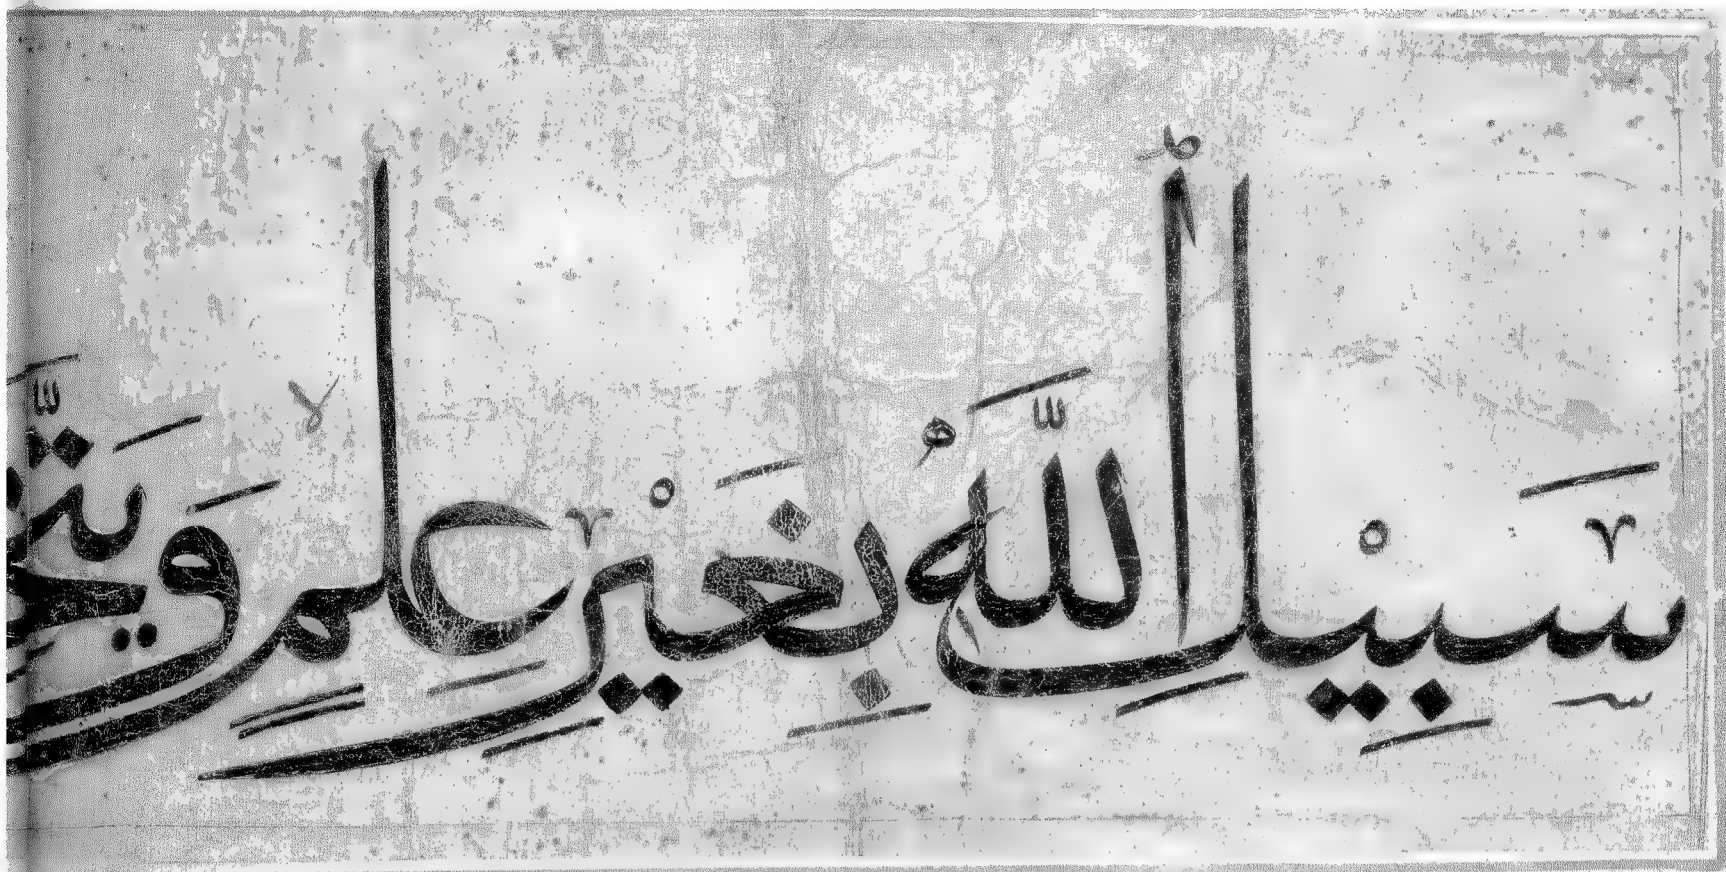 سَبِيْلِ ٱللَّهِ بِغَيْرِ عِلْمٍ وَيَتَّخِ